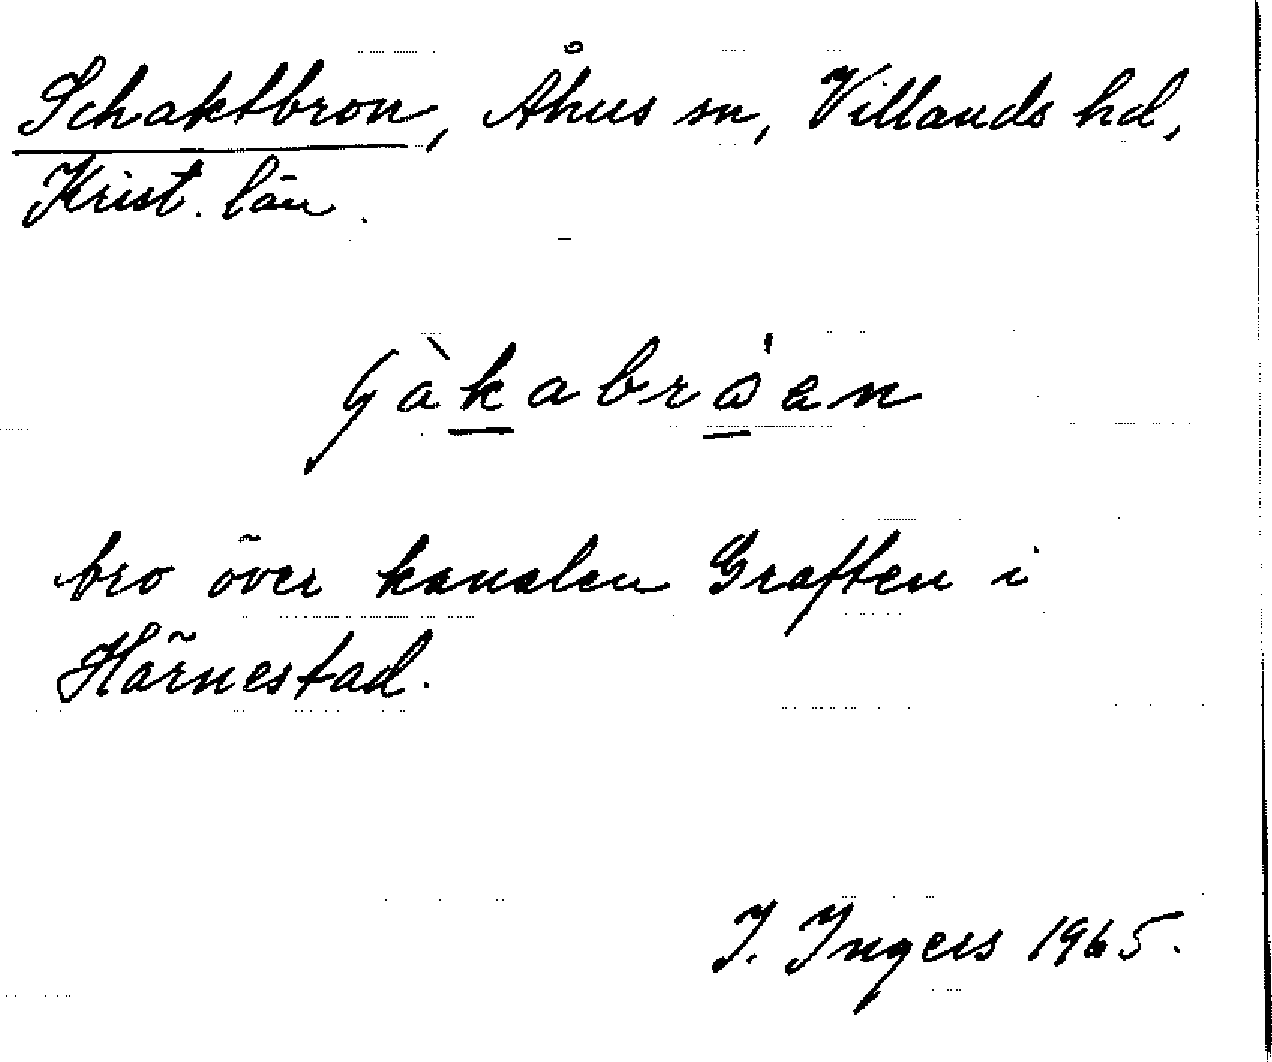 Schaktbron, Åhus sn, Villands hd,
Krist. län.
bro över kanalen Graften i
Härnestad.
I. Ingers 1965.